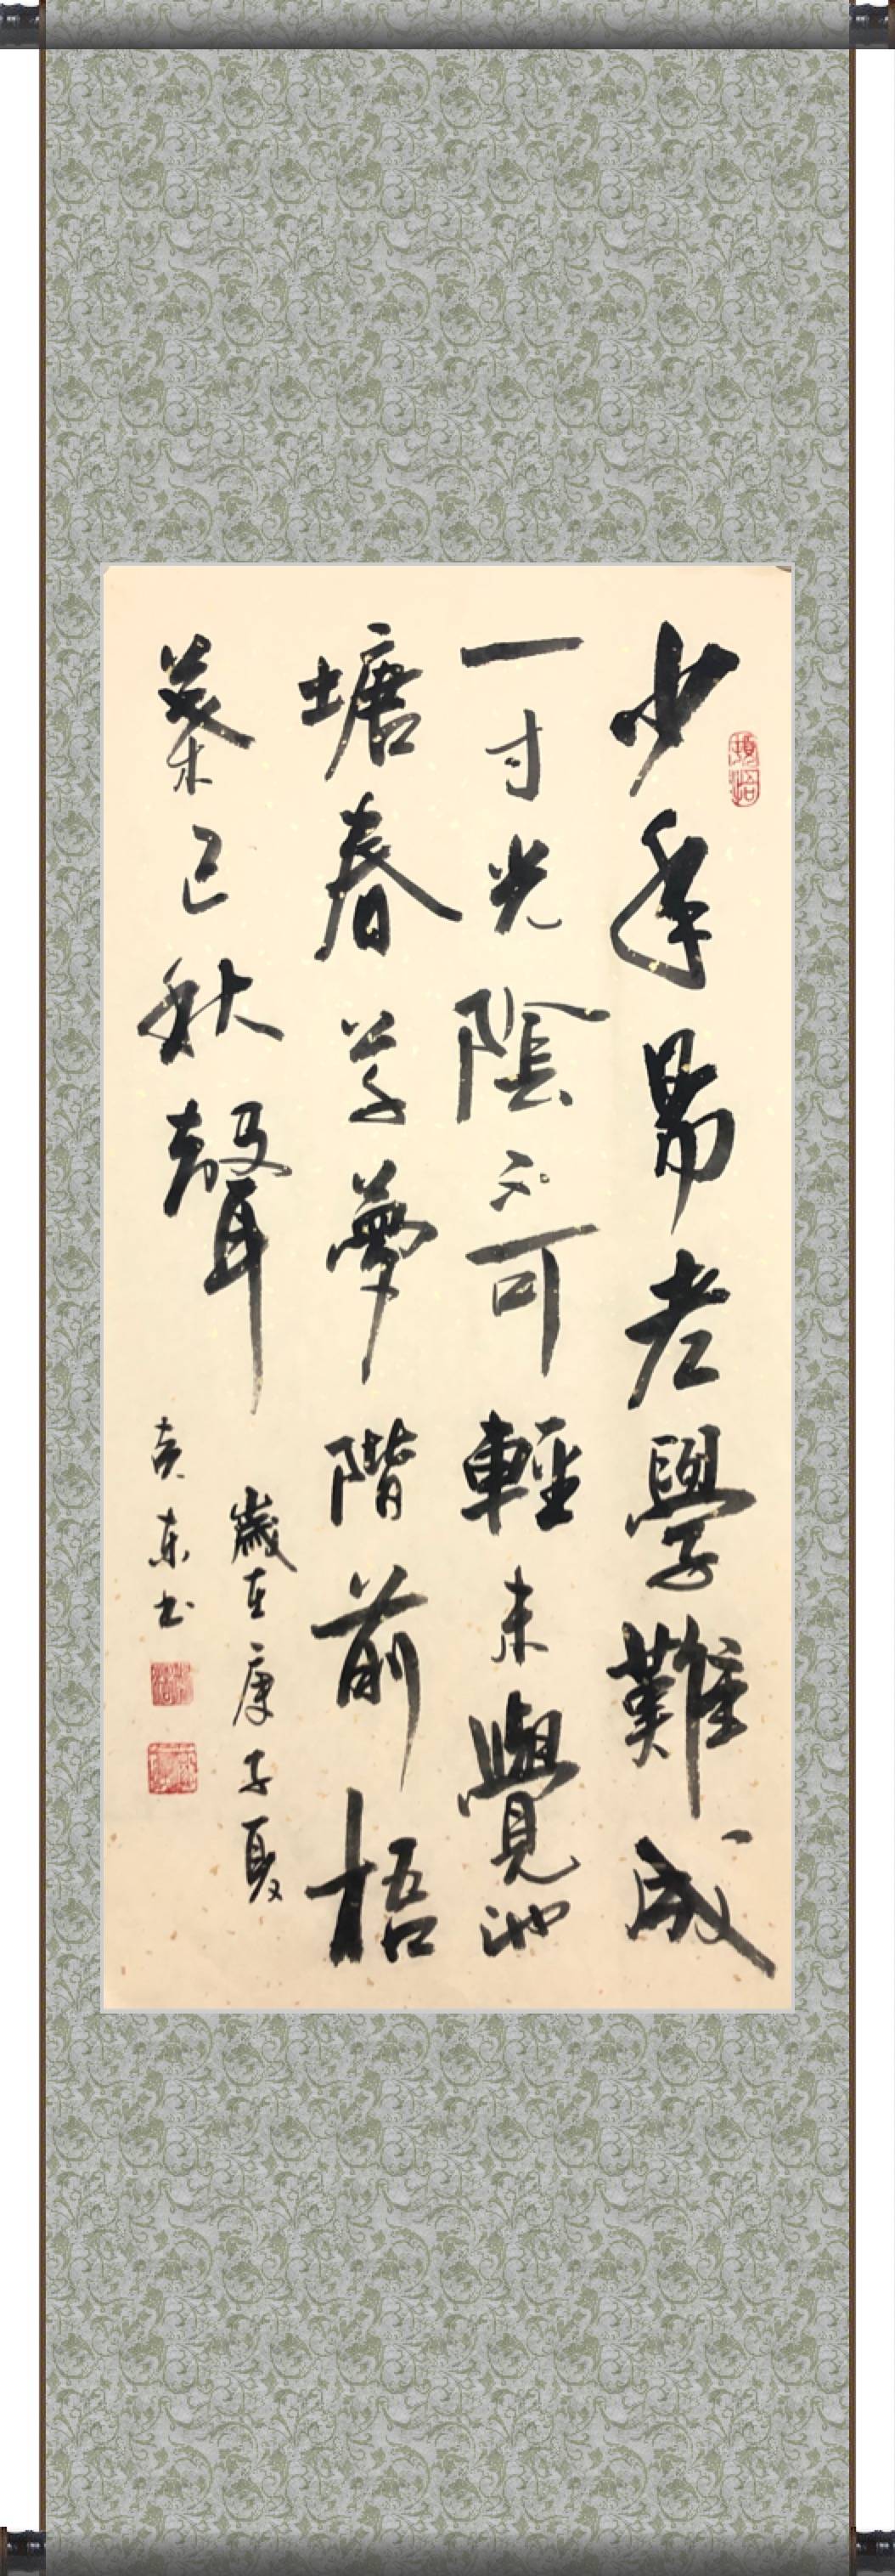 少年易老學難成
一寸光陰不可輕未覺池
塘春草夢階前梧
葉已秋聲
歲在庚子夏
东书